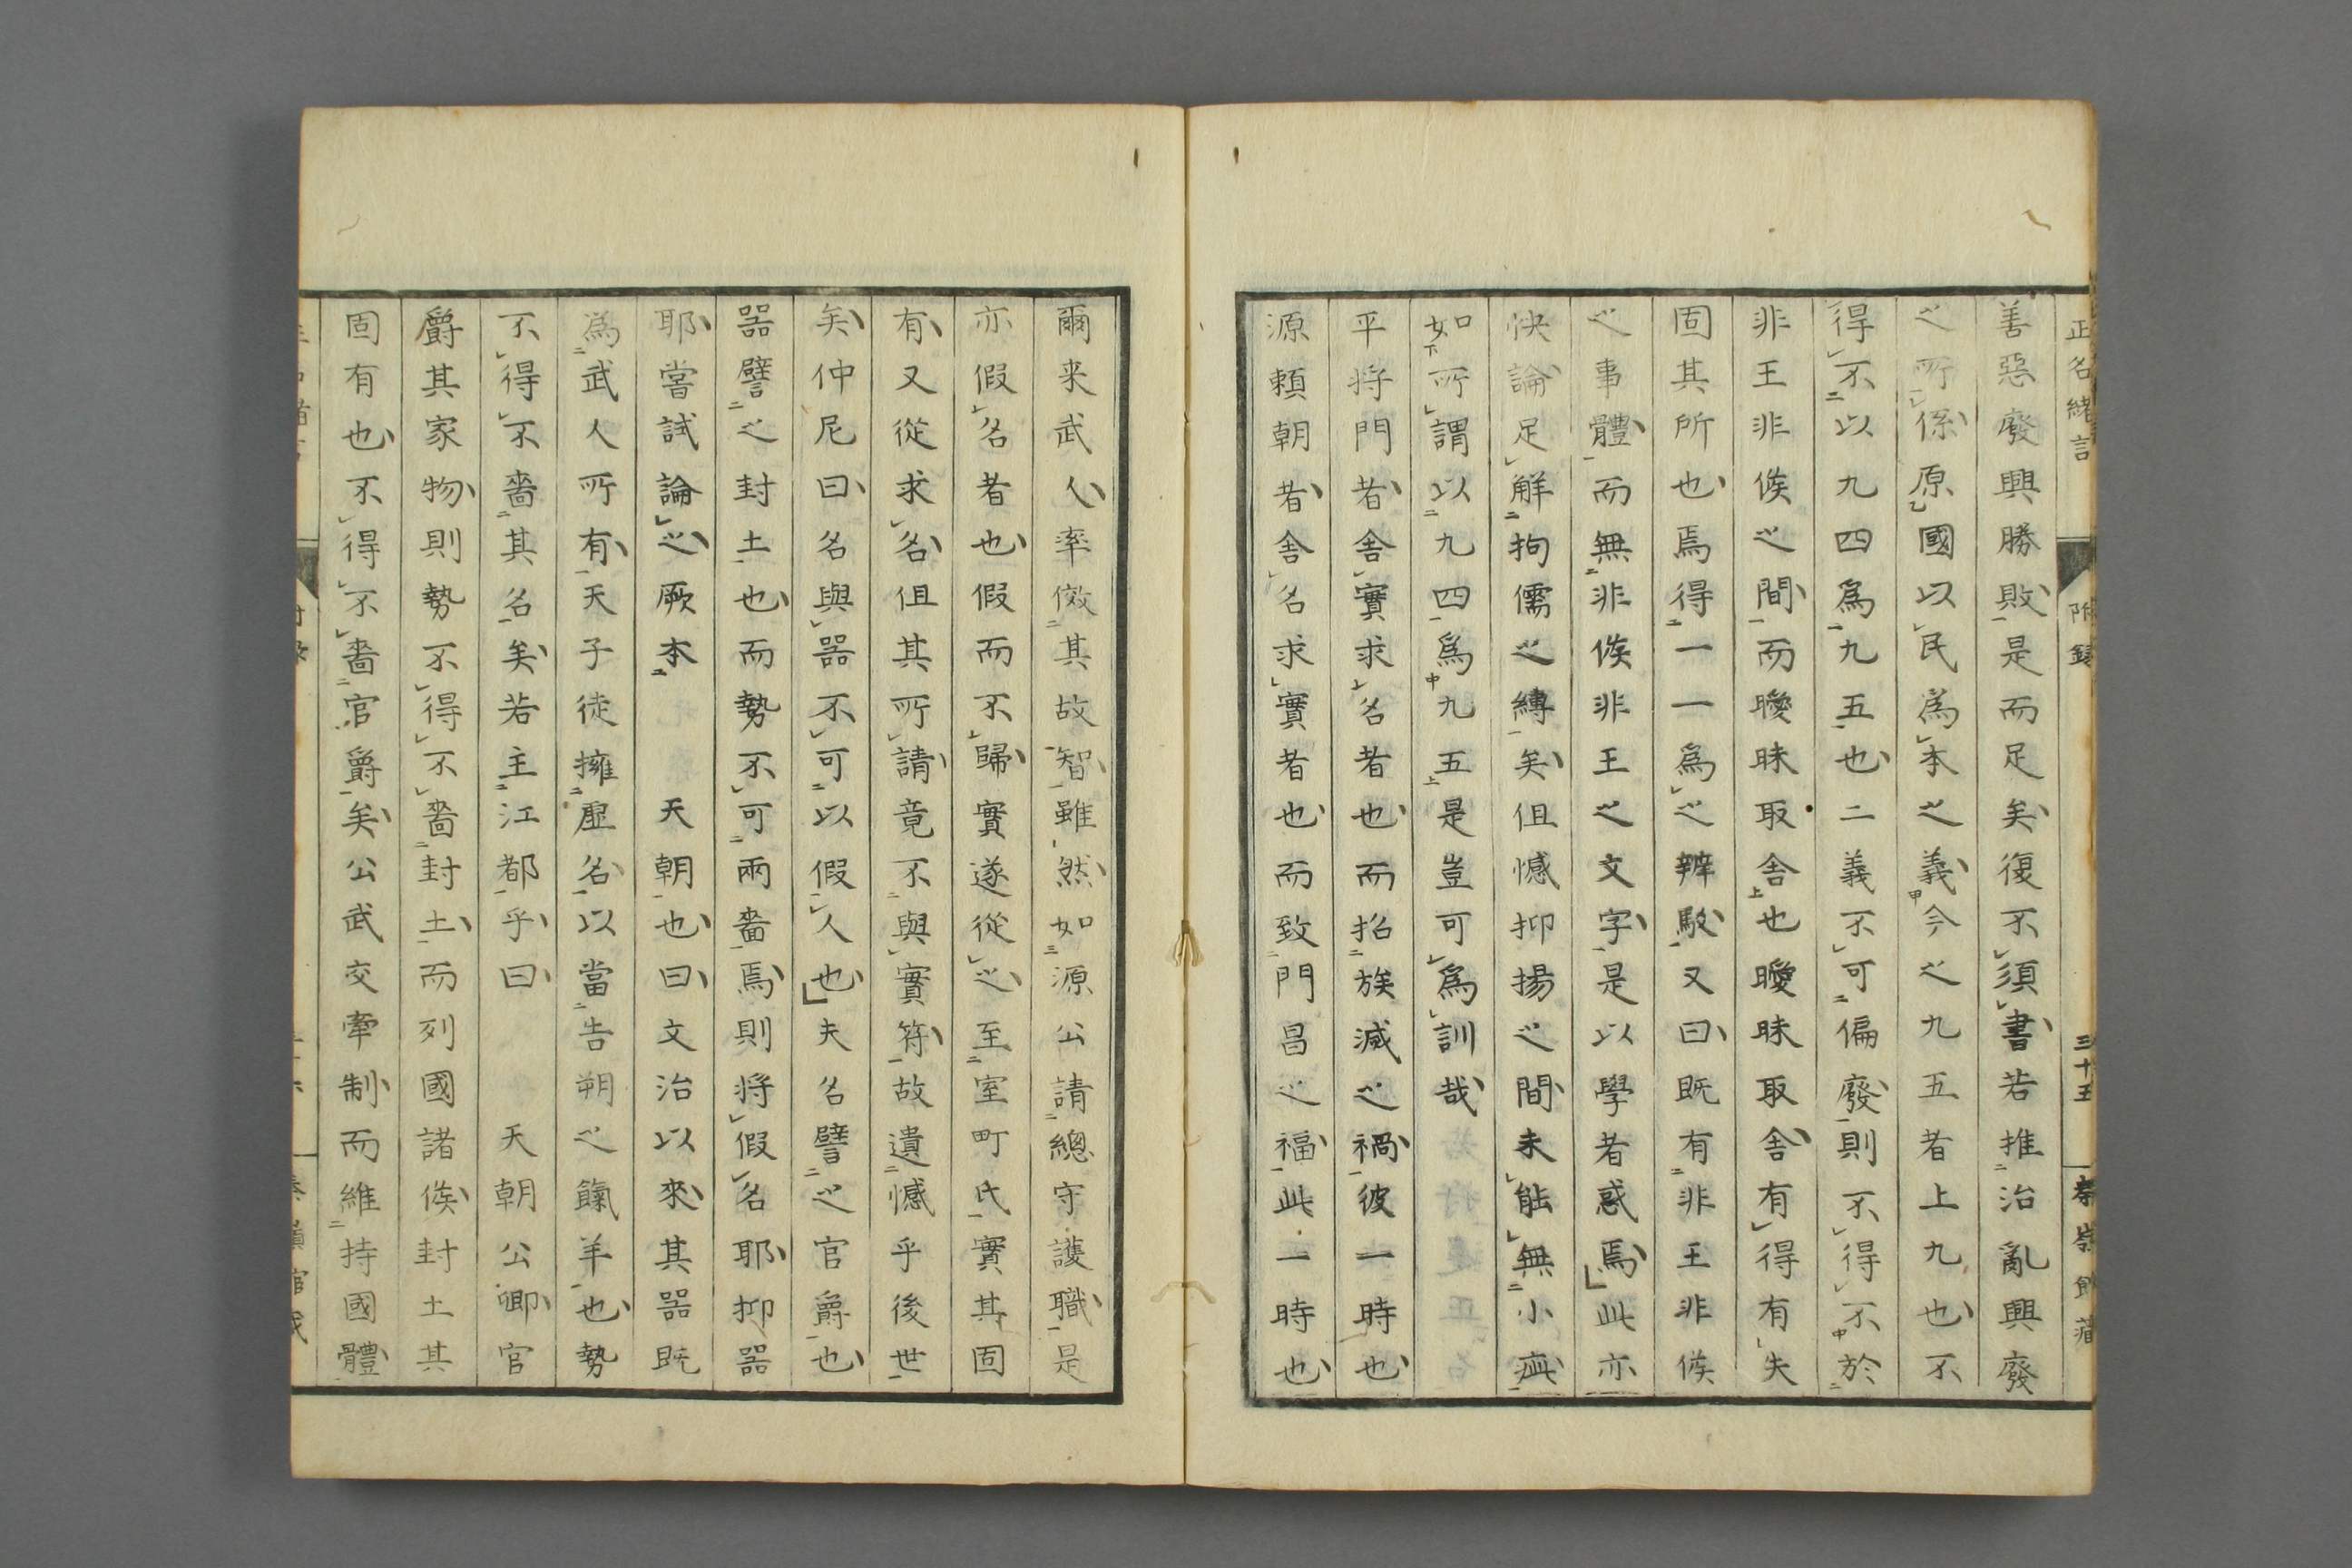 正名緒言 附錄 三十五
善惡廢興勝敗是而足矣復不須書若推治亂興廢
之所係原國以民為本之義今之九五者上九也不
得不以九四為九五也二義不可偏廢則不得不於
非王非侯之間而曖昧取舍也曖昧取舍有得有失
固其所也焉得一一為之辨駁又曰既有非王非侯
之事體而無非侯非王之文字是以學者惑焉此亦
快論足解拘儒之縛矣但憾抑揚之間未能無小疵
如所謂以九四為九五是豈可為訓哉
平將門者舍實求名者也而招族滅之禍彼一時也
源賴朝者舍名求實者也而致門昌之福此一時也
爾来武人率傚其故智雖然如源公請總守護職是
亦假名者也假而不歸實遂從之至室町氏實其固
有又從求名但其所請竟不與實符故遺憾乎後世
矣仲尼曰名與器不可以假人也夫名譬之官爵也
器譬之封土也而勢不可兩嗇焉則將假名耶抑器
耶嘗試論之厥本 天朝也曰文治以來其器既
為武人所有天子徒擁虛名以當告朔之餼羊也勢
不得不嗇其名矣若主江都乎曰 天朝公卿官
爵其家物則勢不得不嗇封土而列國諸侯封土其
固有也不得不嗇官爵矣公武交牽制而維持國體